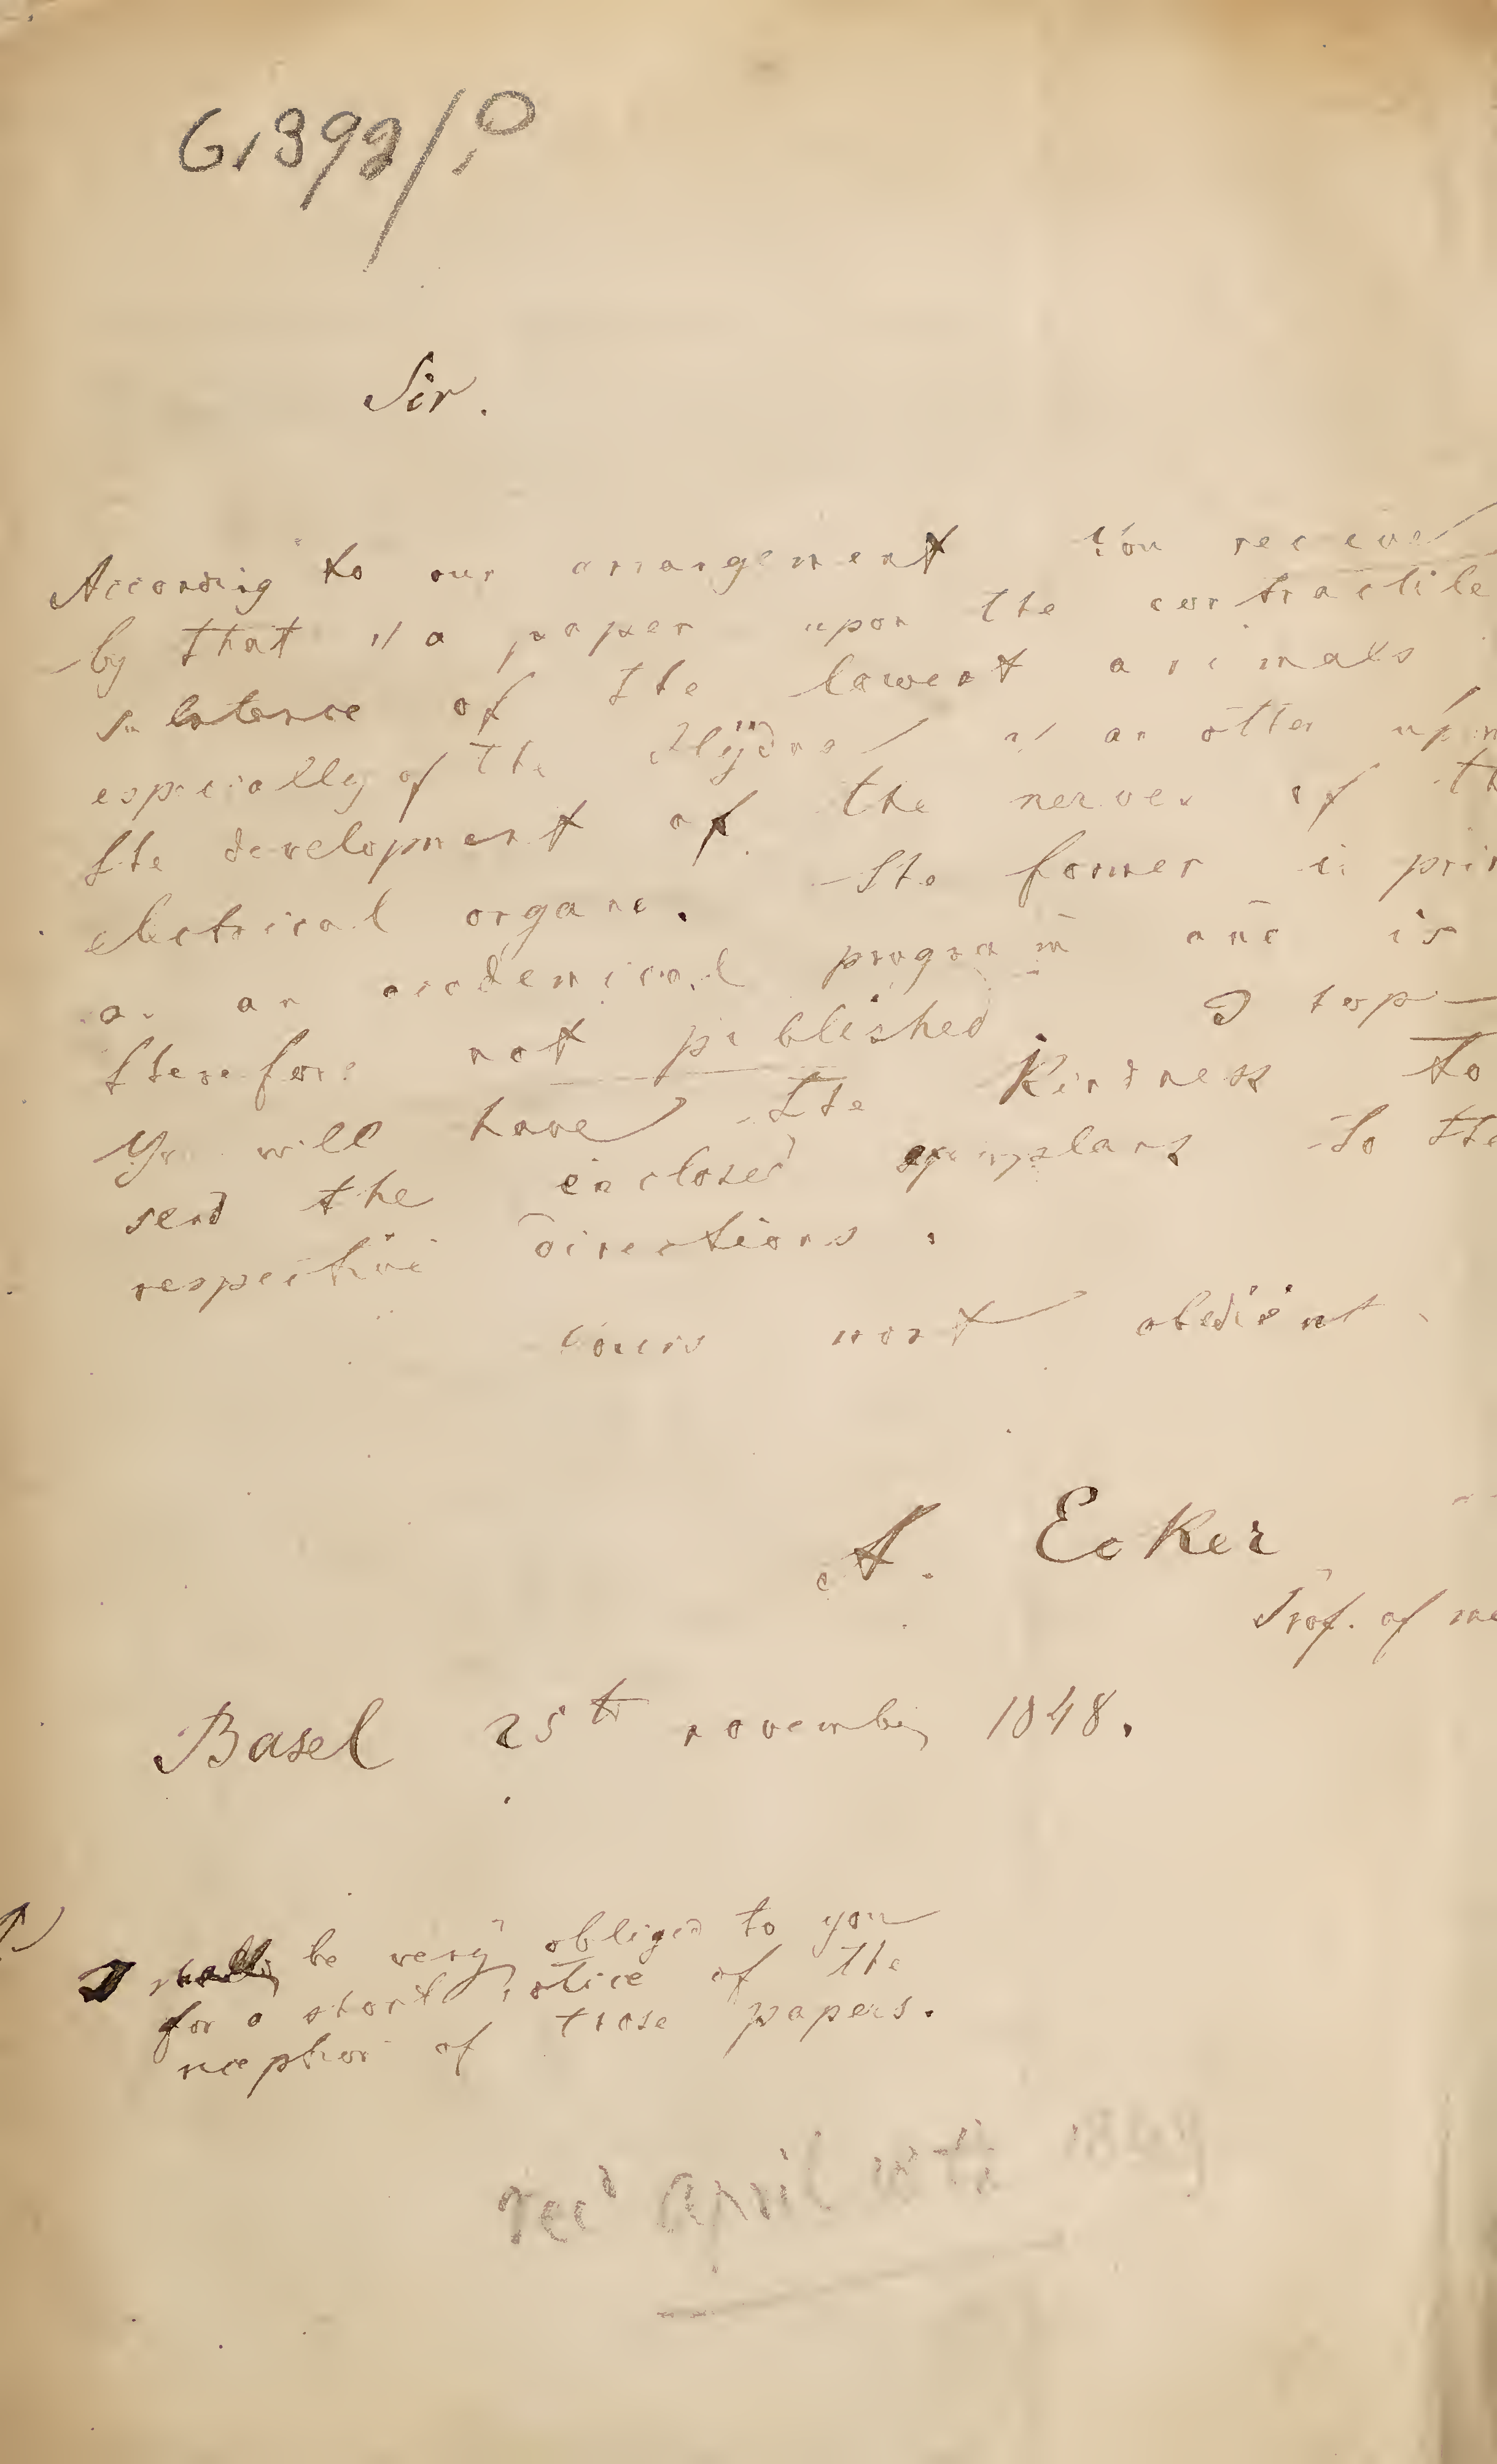 Sir.
According to our arrangement You recieve
by that 1/ a paper upon the contractile
substance of the lowest animals
especially of the Hydra 2/ an other upon
the development of the nerves of
electrical organs. The former is
as an academical program and is
therefore not published. I
You will have the Kindness to
send the inclosed exemplars to the
respective directions.
Yours most obedient
A. Ecker
Prof. of
Basel 25th november 1848.
I shall be very obliged to you
for a short notice of the
reception of those papers.
recd april 1849